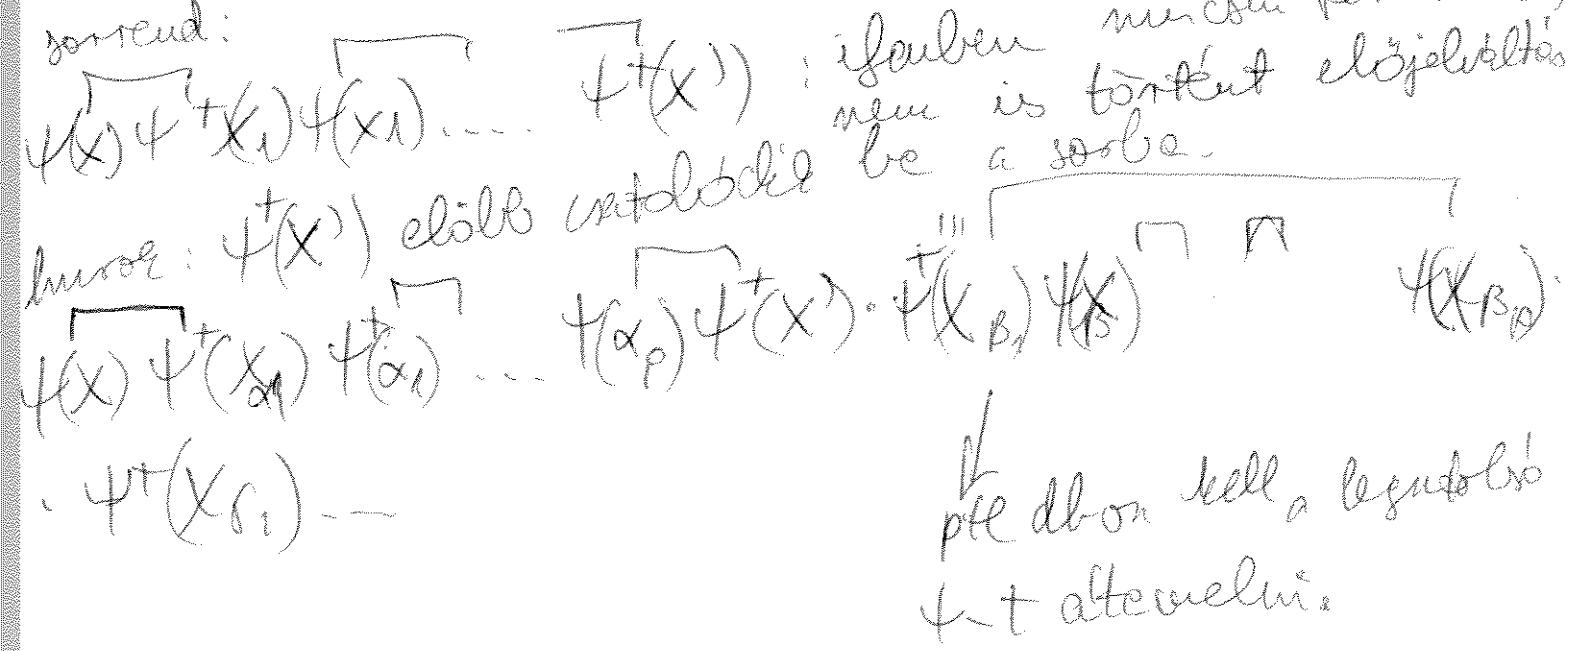 sorrend:
ψ(x) ψ⁺(x₁) ψ(x₁) .... ψ⁺(x') : ilyenben nincsen
nem is történt előjelváltás
hurok: ψ⁺(x') előbb csatolódik be a sorba.
ψ(x) ψ⁺(x_α₁) ψ⁺(α₁) ... ψ(α_p) ψ⁺(x') · ψ⁺(x_β₁) ψ(β) ψ(x_β_p).
· ψ⁺(x_γ₁) ...
ptl dbon kell a legutolsó
ψ-t átemelni.